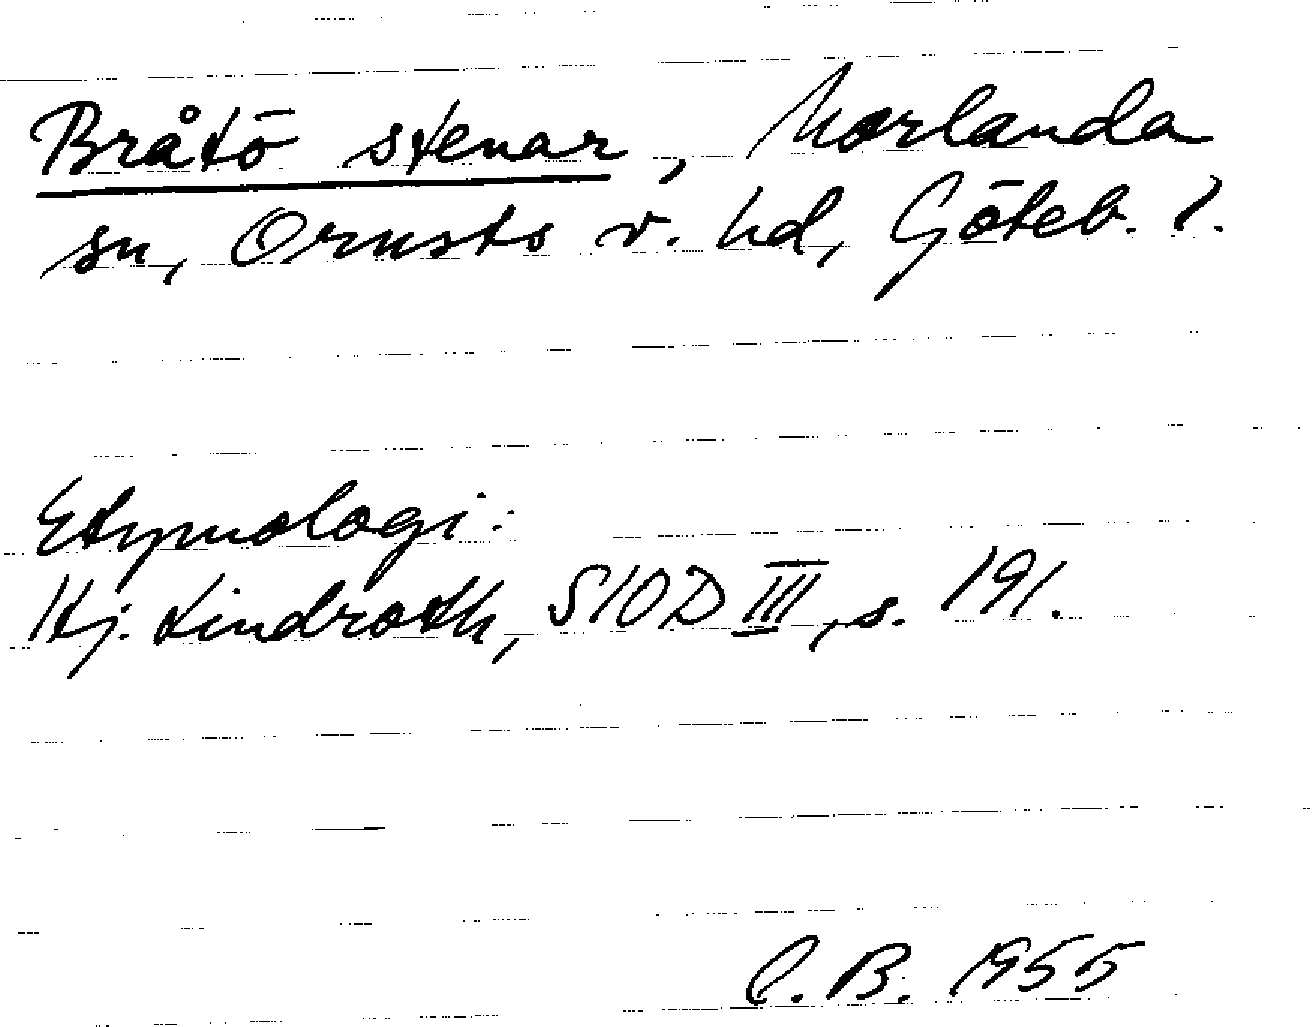 Bråtö stenar, Morlanda
sn, Orusts v. hd, Göteb. l.
Etymologi:
Hj. Lindroth, SIOD III, s. 191.
C. B. 1955